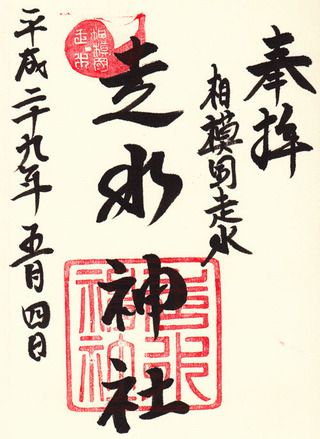 奉拝
相模国走水
走水神社
平成二十九年五月四日
走水神社